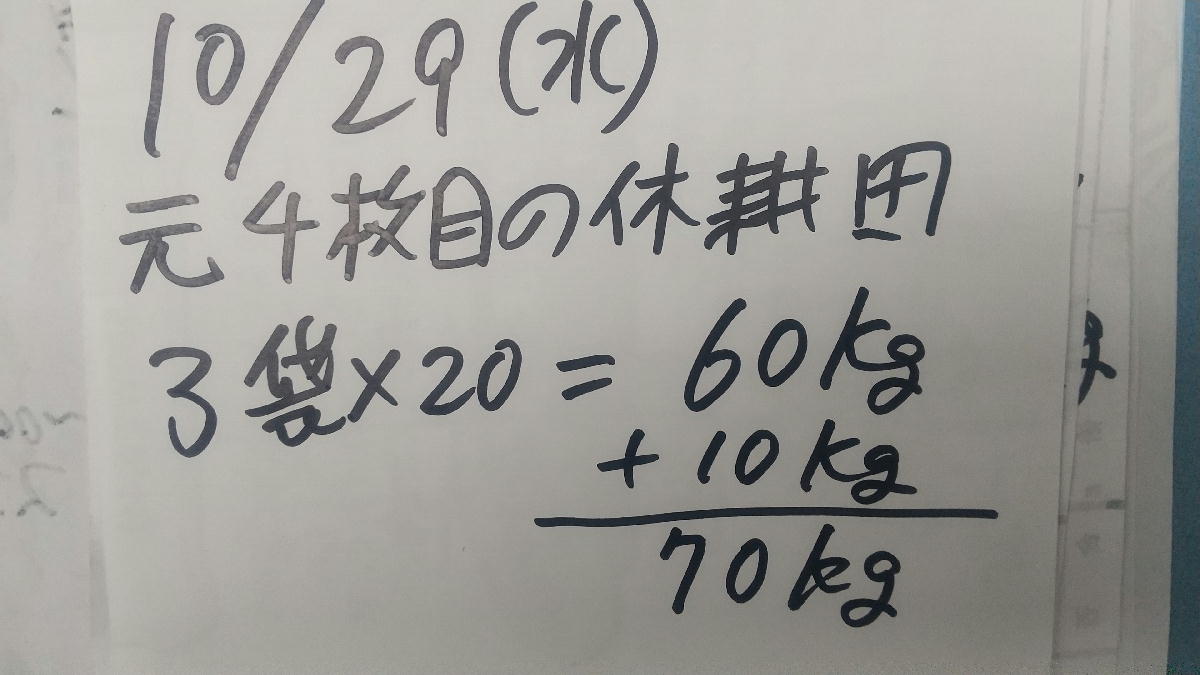 10/29(水)
元4枚目の休耕田
3袋×20=60kg
+10kg
70kg